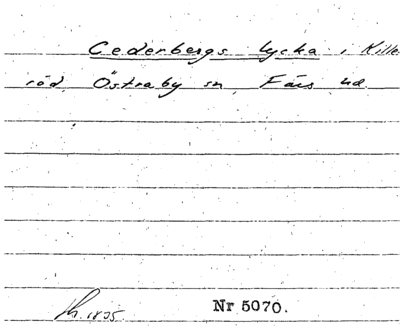 Cederbergs lycka i Kille
röd, Östraby sn, Färs hd.
1835
Nr 5070.